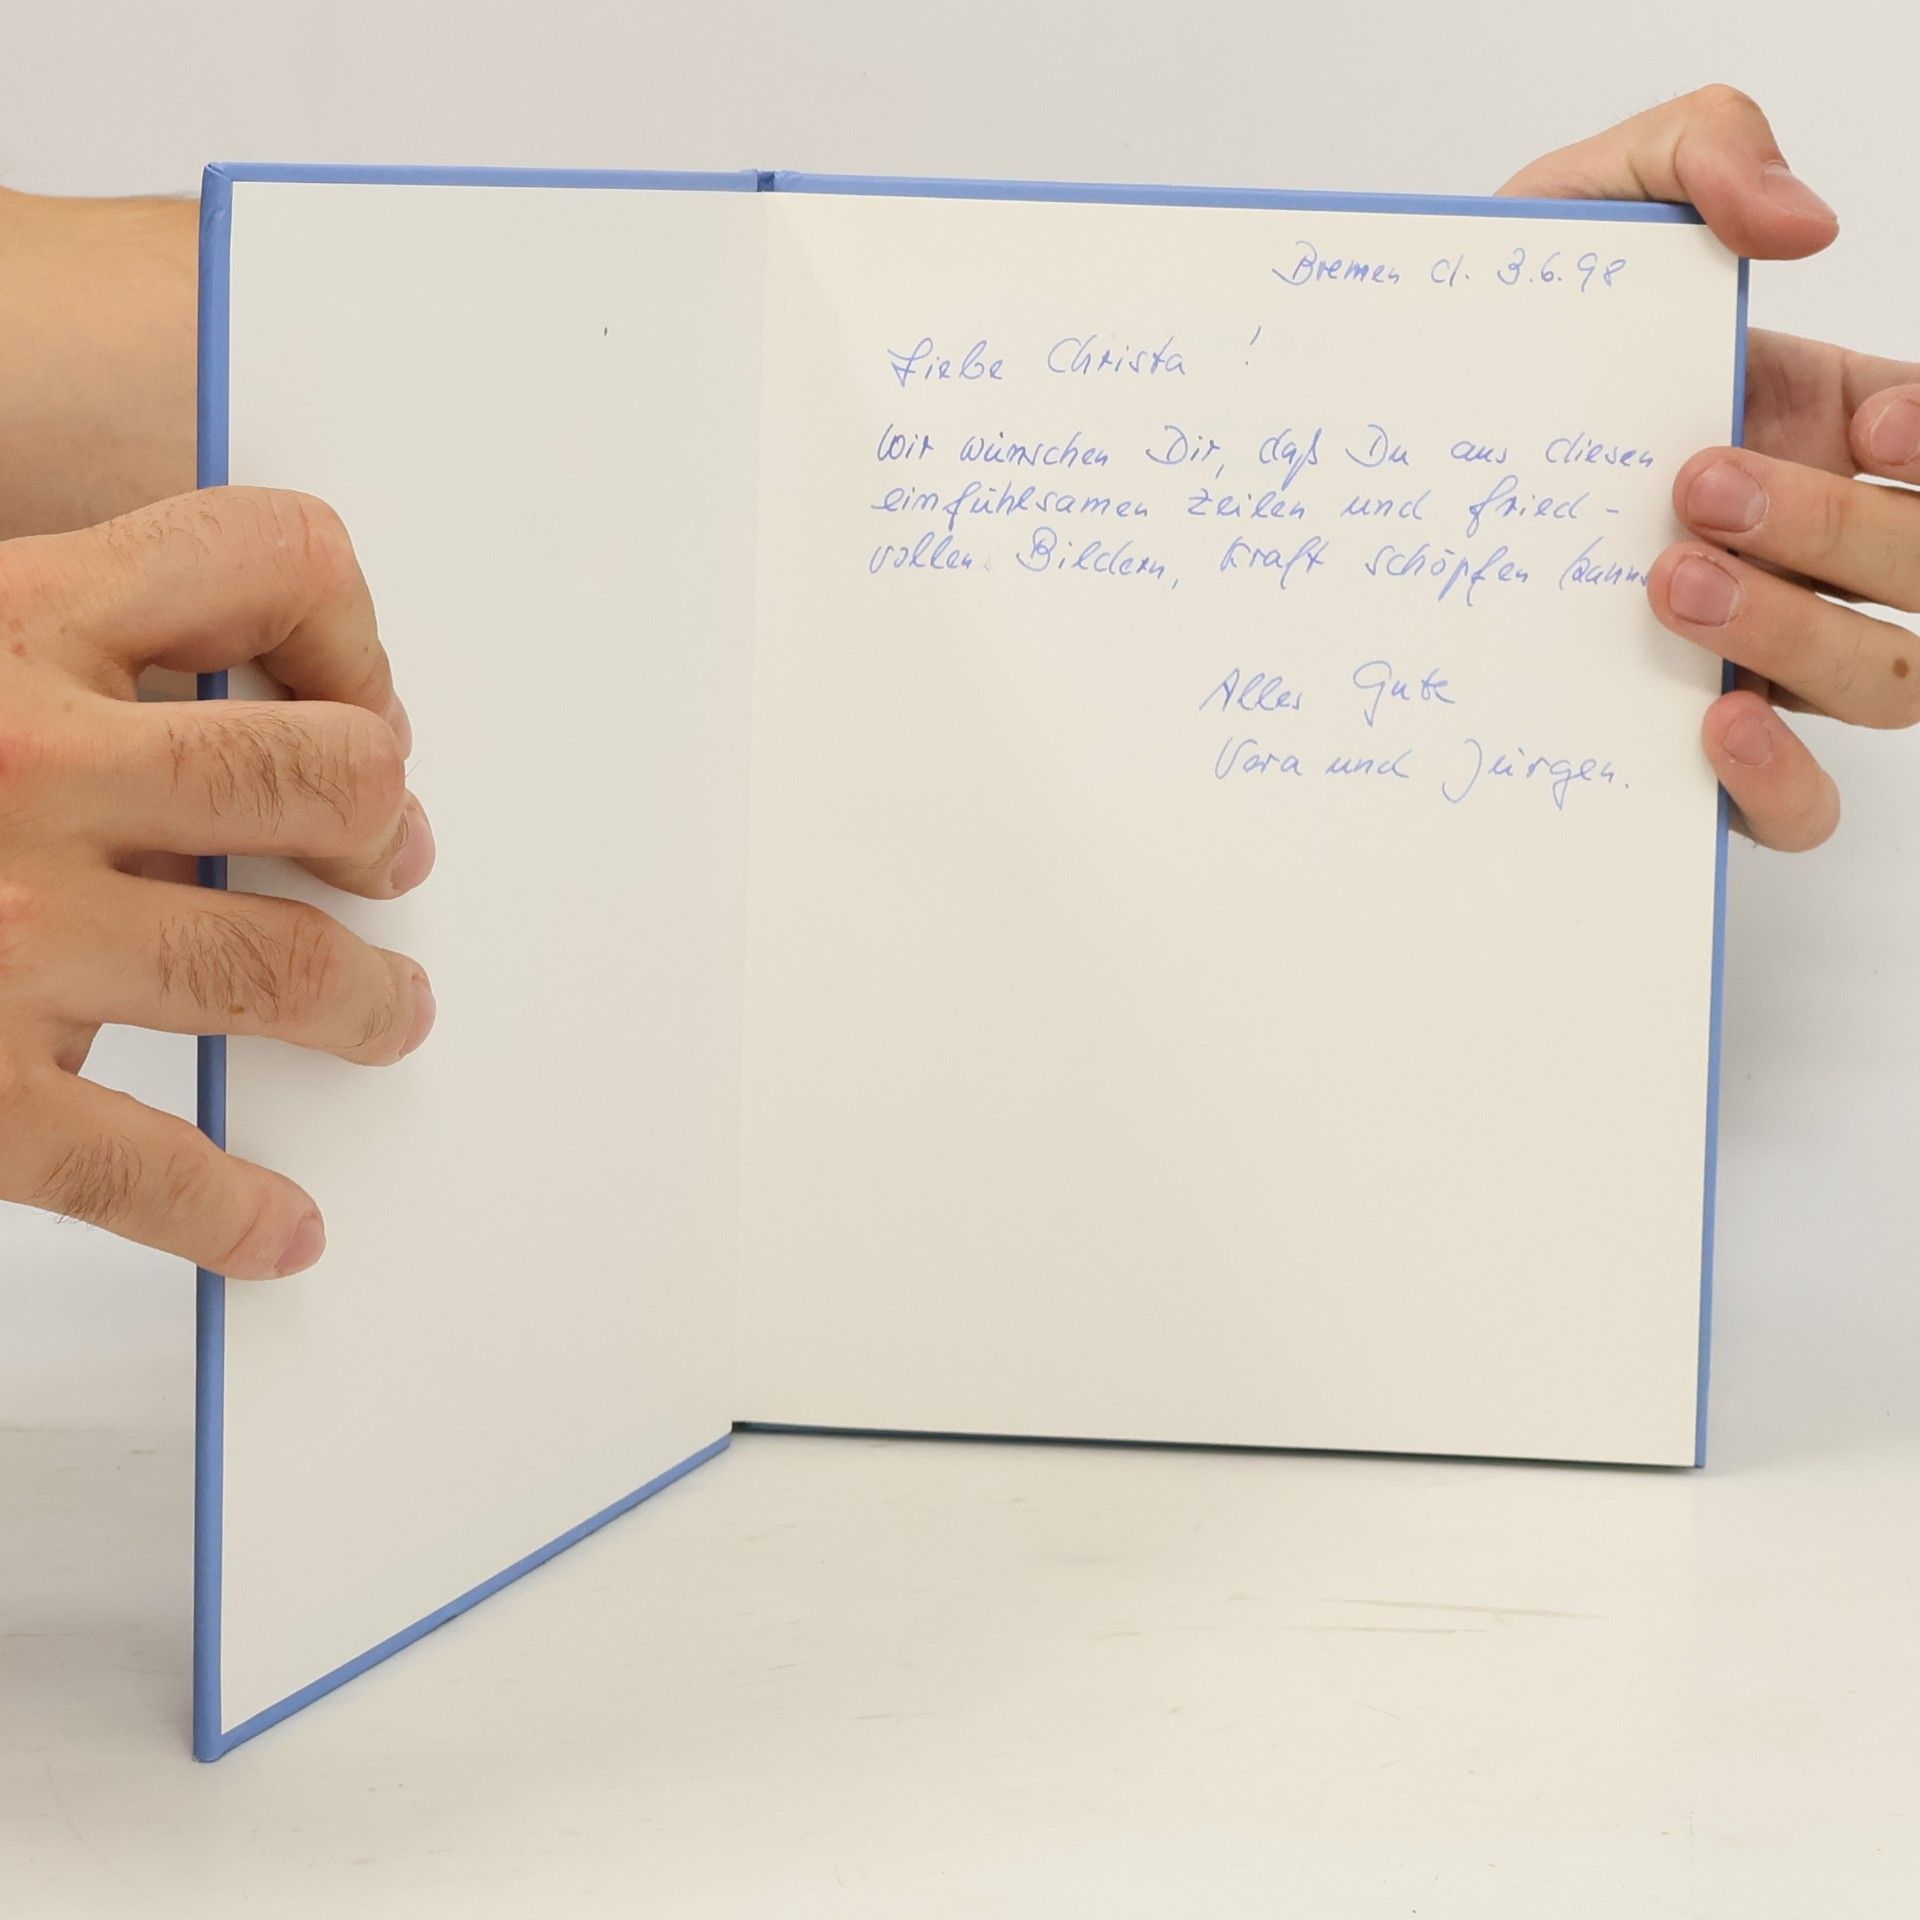 Bremen d. 3.6.98
Liebe Christa !
Wir wünschen Dir, daß Du aus diesen
einfühlsamen Zeilen und fried -
vollen Bildern, Kraft schöpfen kanns
Alles Gute
Vera und Jürgen.